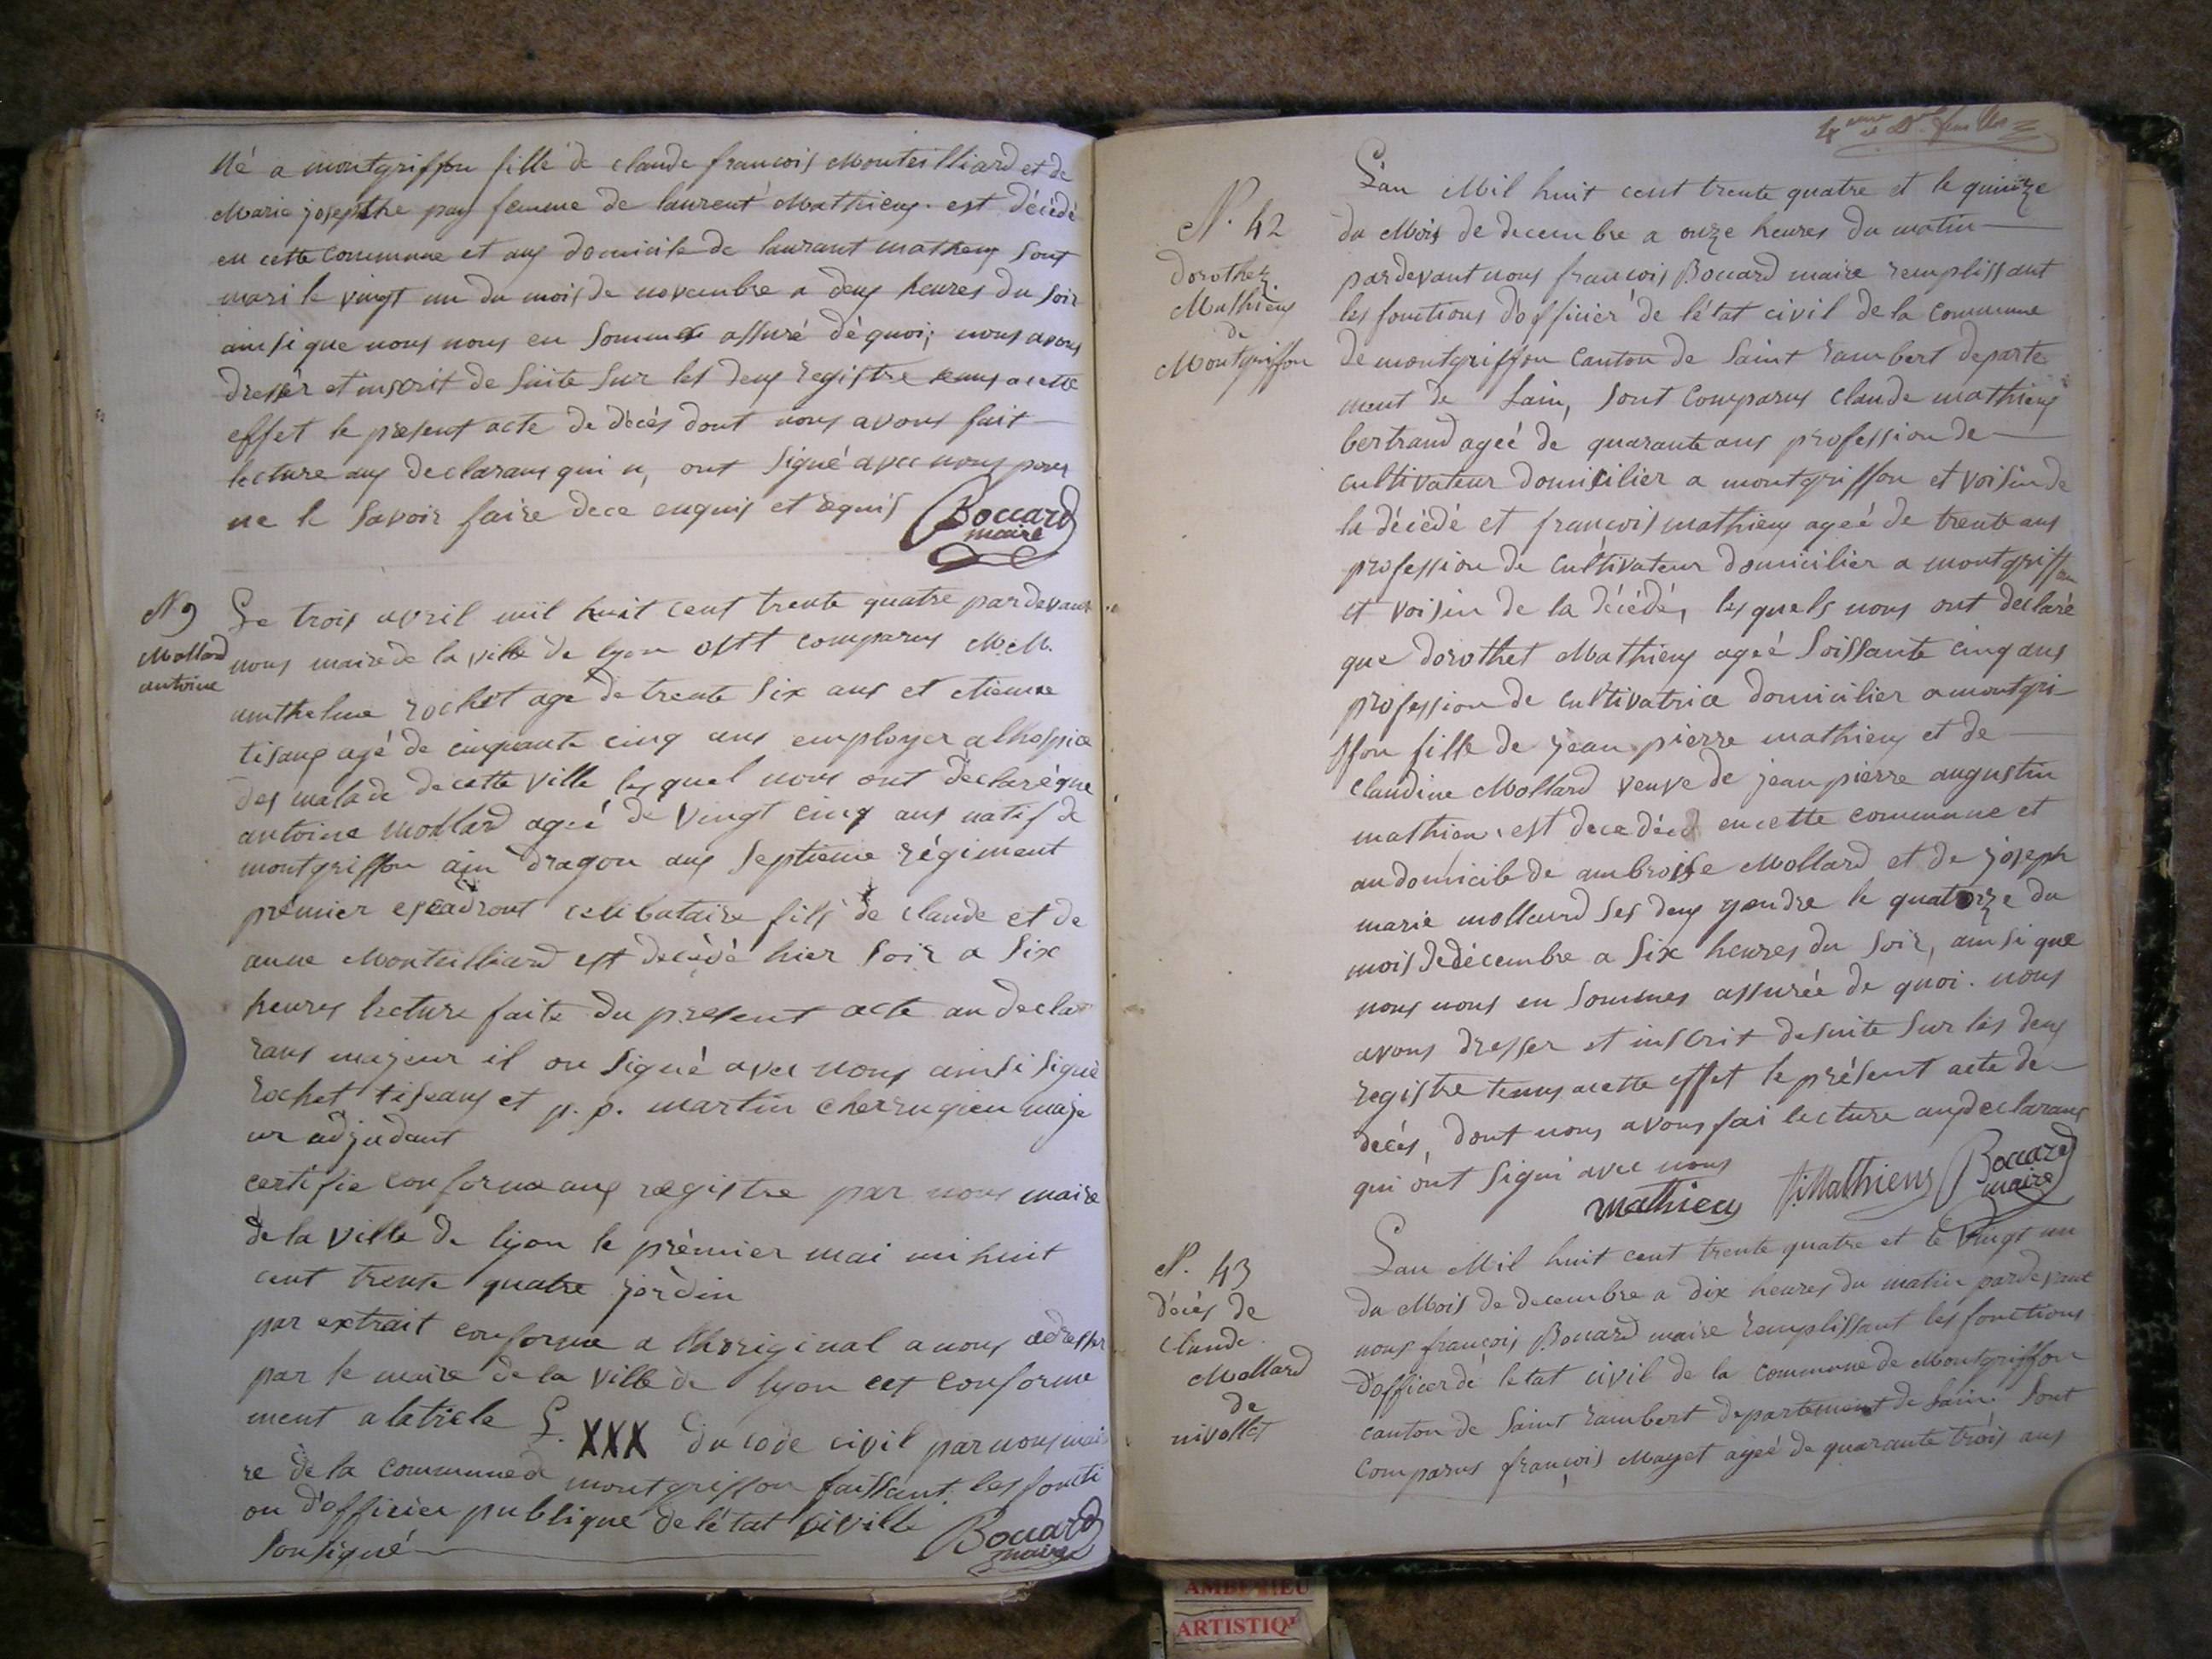 Né a montgriffon fille de claude francois Monteilliard et de
Marie josepthe pay femme de laurent Mathieux est décédé
en cette commune et aux domicile de laurant mathieux sont
mari le vingt un du mois de novembre a deux heures du soir
ainsi que nous nous en somme assuré dequoi; nous avons
dressér et inscrit de suite sur les deux registre tenus a cette
effet le present acte de décés dont nous avons fait
lecture aux declarans qui n, ont signé avec nous pour
ne le savoir faire dece enquis et requis Boccard
maire
N 9
Mollard
antoine
Le trois avril mil huit cent trente quatre pardevant
nous maire de la ville de lyon comparus M.M.
anthelme rochet age de trente six ans et etienne
tisaux agé de cinquante cinq ans employer alhospice
des malade de cette ville lesquel nous ont declaré que
antoine Mollard ageé de vingt cinq ans natif de
montgriffon ain dragon aux septieme régiment
premier escadront celibataire fils de claude et de
anne Monteilliard est decédé hier soir a six
heures lecture faite du present acte au decla
rans majeur il on signé avec nous ainsi signé
rochet tiseaux et p. p. martin cherrugien maje
ur adjudant
certifie conforme aux registre par nous maire
de la ville de lyon le prémier mai mi huit
cent trente quatre jordin
par extrait conforme a lhoriginal a nous adresser
par le maire de la ville de lyon cet conforme
ment a laticle XXX du code civil par nous mai
re de la commune de montgriffon faissant les foncti
on d'officier publique de létat civille
sousigné Boccard
maire
N. 42
Dorothez
Mathieux
de
Montgriffon
L'an Mil huit cent trente quatre et le quintze
du Mois de decembre a onze heures du matin
pardevant nous francois Boccard maire remplissant
les fonctions d'officier de létat civil de la commune
de montgriffon canton de saint rambert departe
ment de Lain, sont comparus claude mathieux
bertrand ageé de quarante ans profession de
cultivateur domicilier a montgriffon et voisin de
la décédé et francois mathieux ageé de trente ans
profession de cultivateur domicilier a montgriffon
et voisin de la décédé, lesquels nous ont declaré
que dorothet Mathieux ageé soissante cinq ans
profession de cultivatrice domicilier a montgri
ffon fille de jean pierre mathieux et de
claudine Mollard veuve de jean pierre augustin
mathieu, est decedéed en cette commune et
au domicile de ambroisse Mollard et de joseph
marie mollard ses deux gendre le quatorze du
mois de décembre a six heures du soir, ainsi que
nous nous en sommes assurée de quoi. nous
avons dresser et inscrit de suite sur les deux
registre tenus a cette effet le présent acte de
decés, dont nous avons fai lecture aux declarans
qui ont signi avec nous
mathieux f. Mathieux Boccard
maire
N. 43
décés de
Claude
Mollard
de
nivollet
Lan Mil huit cent trente quatre et le vingt un
du Mois de decembre a dix heures du matin pardevant
nous françois Boccard maire remplissant les fonctions
d'officier de létat civil de la commune de Montgriffon
canton de saint rambert departement de Lain. sont
comparus françois Mayet ageé de quarante trois ans
AMBERIEU
ARTISTIQU